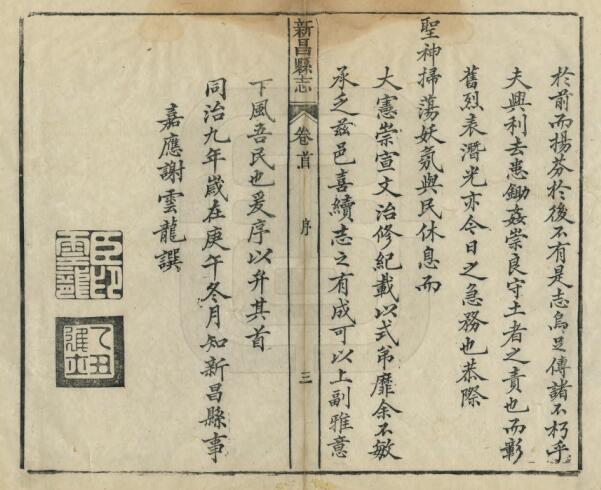 於前而揚芬於後不有是志烏足傳諸不朽乎
夫興利去患鋤姦崇良守土者之責也而彰
舊烈表潛光亦今日之急務也恭際
聖神掃蕩妖氛與民休息而
大憲崇宣文治修紀載以式帛靡余不敏
承乏兹邑喜續志之有成可以上副雅意
新昌縣志
卷首
序
三
下風吾民也爰序以弁其首
同治九年歲在庚午冬月知新昌縣事
嘉應謝雲龍譔
臣印雲龍
乙丑進士